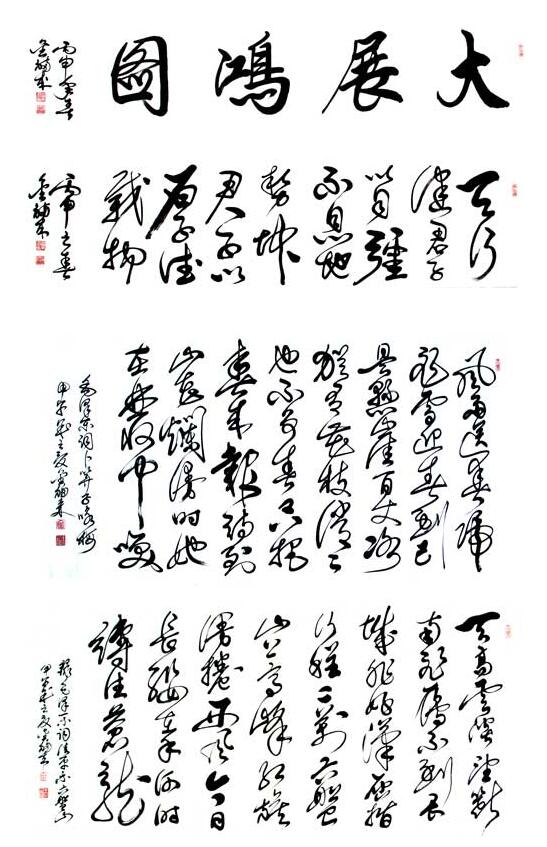 大展鴻圖
丙申之春
天行
健君子
以自強
不息地
勢坤
君子以
厚德
載物
丙申之春
風雨送春歸
飛雪迎春到已
是懸崖百丈冰
猶有花枝俏俏
也不爭春只把
春來報待到
山花爛漫時她
在叢中笑
毛澤東詞卜算子詠梅
天高雲淡望斷
南飛雁不到長
城非好漢屈指
行程二萬六盤
山上高峰紅旗
漫捲西風今日
長纓在手何時
縛住蒼龍
錄毛澤東詞清平樂六盤山